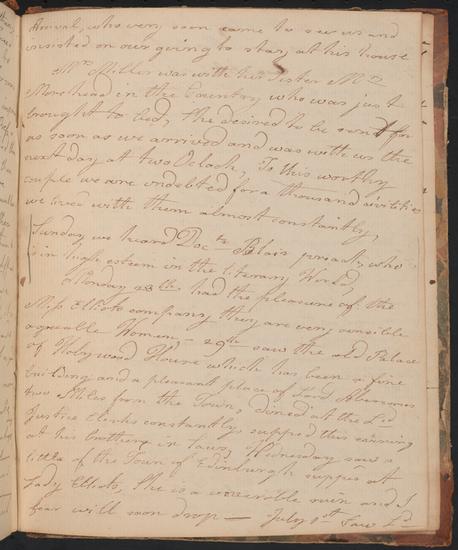 Arrival, who very soon came to see us and
insisted on our going to stay at his house
Mrs Miller was with her sister Mrs
Morehead in the Country who was just
brought to bed, she desired to be sent for
as soon as we arrived and was with us the
next day at two Oclock, To this worthy
couple we are indebted for a thousand civilities
we lived with them almost constantly,
Sunday we heard Doctr Blair preach, who
is in high esteem in the literary World,
Monday 28th had the pleasure of the
Miss Elliots company they are very sensible
agreable Women - 29th saw the old Palace
of Holyrood House which has been a fine
building and a pleasant place of Lord Abercorns
two Miles form the Town, dined at the Ld
Justice Clerks constantly, supped this evening
at his brothers in Laws, Wednesday saw a
little of the Town of Edinburgh supper at
Lady Elliots, She is a venerable ruin and I
fear will soon drop — July 1st Saw Ld